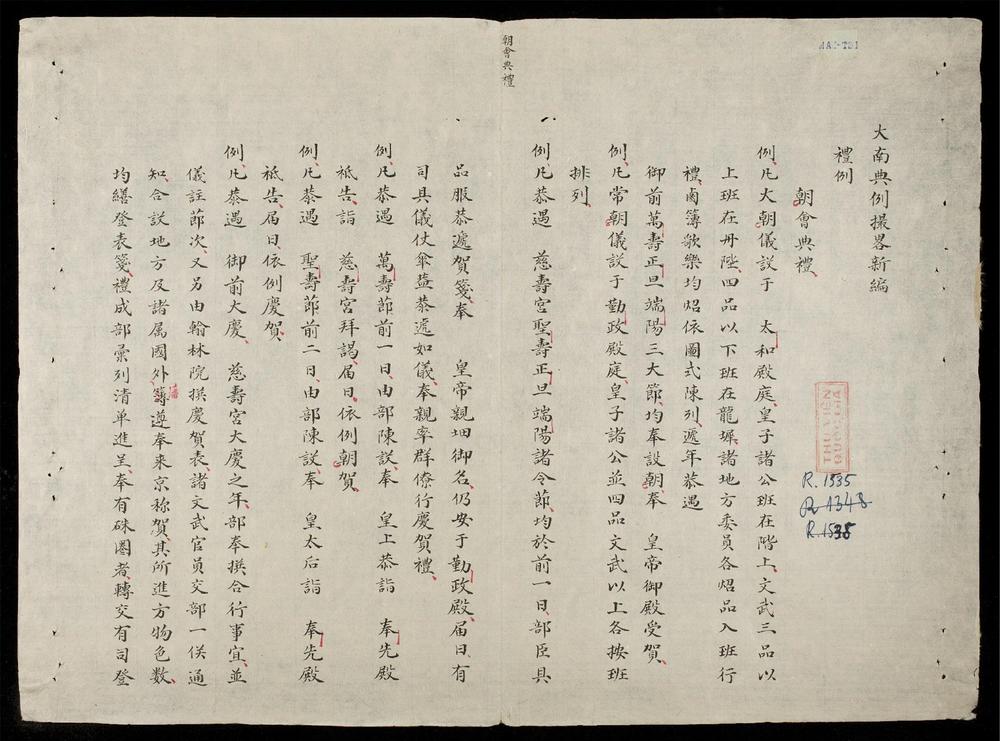 大南典例撮畧新編
禮例
朝會典禮
例凡大朝儀設于 太和殿庭皇子諸公班在階上文武三品以
上班在丹陛四品以下班在龍墀諸地方委員各炤品入班行
禮鹵簿歌樂均炤依圖式陳列遞年恭遇
御前萬壽正旦端陽三大節均奉設朝奉 皇帝御殿受賀
例凡常朝儀設于勤政殿庭皇子諸公並四品文武以上各按班
排列
例凡恭遇 慈壽宮聖壽正旦端陽諸令節均於前一日部臣具
朝會典禮
品服恭遞賀箋奉 皇帝親㧢御名仍安于勤政殿届日有
司具儀仗傘蓋恭遞如儀奉親率群僚行慶賀禮
例凡恭遇 萬壽節前一日由部陳設奉 皇上恭詣 奉先殿
祗告詣 慈壽宮拜謁届日依例朝賀
例凡恭遇 聖壽節前二日由部陳設奉 皇太后詣 奉先殿
祗告届日依例慶賀
例凡恭遇 御前大慶 慈壽宮大慶之年部奉撰合行事宜並
儀註節次又另由翰林院撰慶賀表諸文武官員交部一俟通
知合設地方及諸属國外藩遵奉来京称賀其所進方物色数
均繕登表箋禮成部彙列清单進呈奉有硃圏者轉交有司登
THƯ VIỆN
QUỐC GIA
R. 1535
R 1348
R 1535